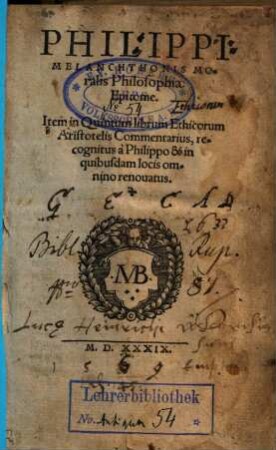 PHILIPPI
MELANCHTHONIS MO-
ralis Philosophiæ
Epitome.
Ethicorum
54
Item in Quintum librum Ethicorum
Aristotelis Commentarius, re-
cognitus à Philippo & in
quibusdam locis om-
nino renouatus.
G E C
1633
Bibl Rup.
MB
81.
M. D. XXXIX.
1 5 6 9
Lehrerbibliothek
No. Antiqua 54